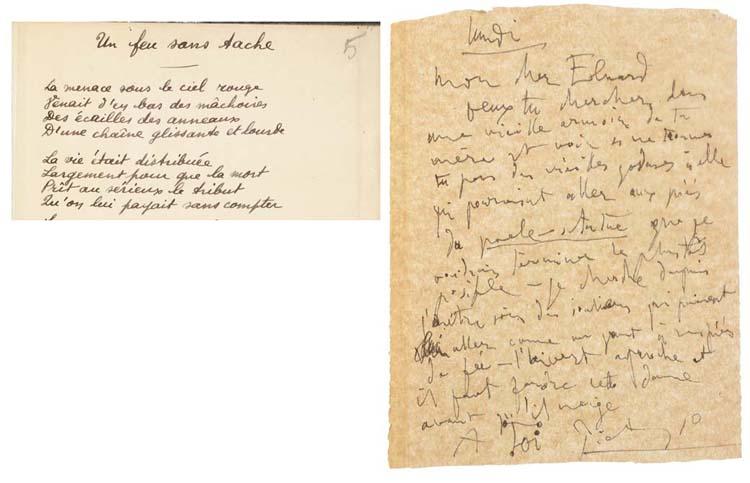 Un feu sans tache
5
La menace sous le ciel rouge
Venait d'en bas des mâchoires
Des écailles des anneaux
D'une chaîne glissante et lourde
La vie était distribuée
Largement pour que la mort
Prît au sérieux le tribut
Qu'on lui payait sans compter
lundi
mon cher Eluard
veux tu chercher dans
une vieille armoire de ta
mère et voir si ne trouves
tu pas des vieilles godasses à elle
qui pourraient aller aux pieds
du que je
voudrais terminer le plus tôt
possible – je cherche depuis
des souliers qui puissent
aller comme un gant à
de fée – l'hiver approche et
il faut cette dame
avant qu'il neige
A Toi